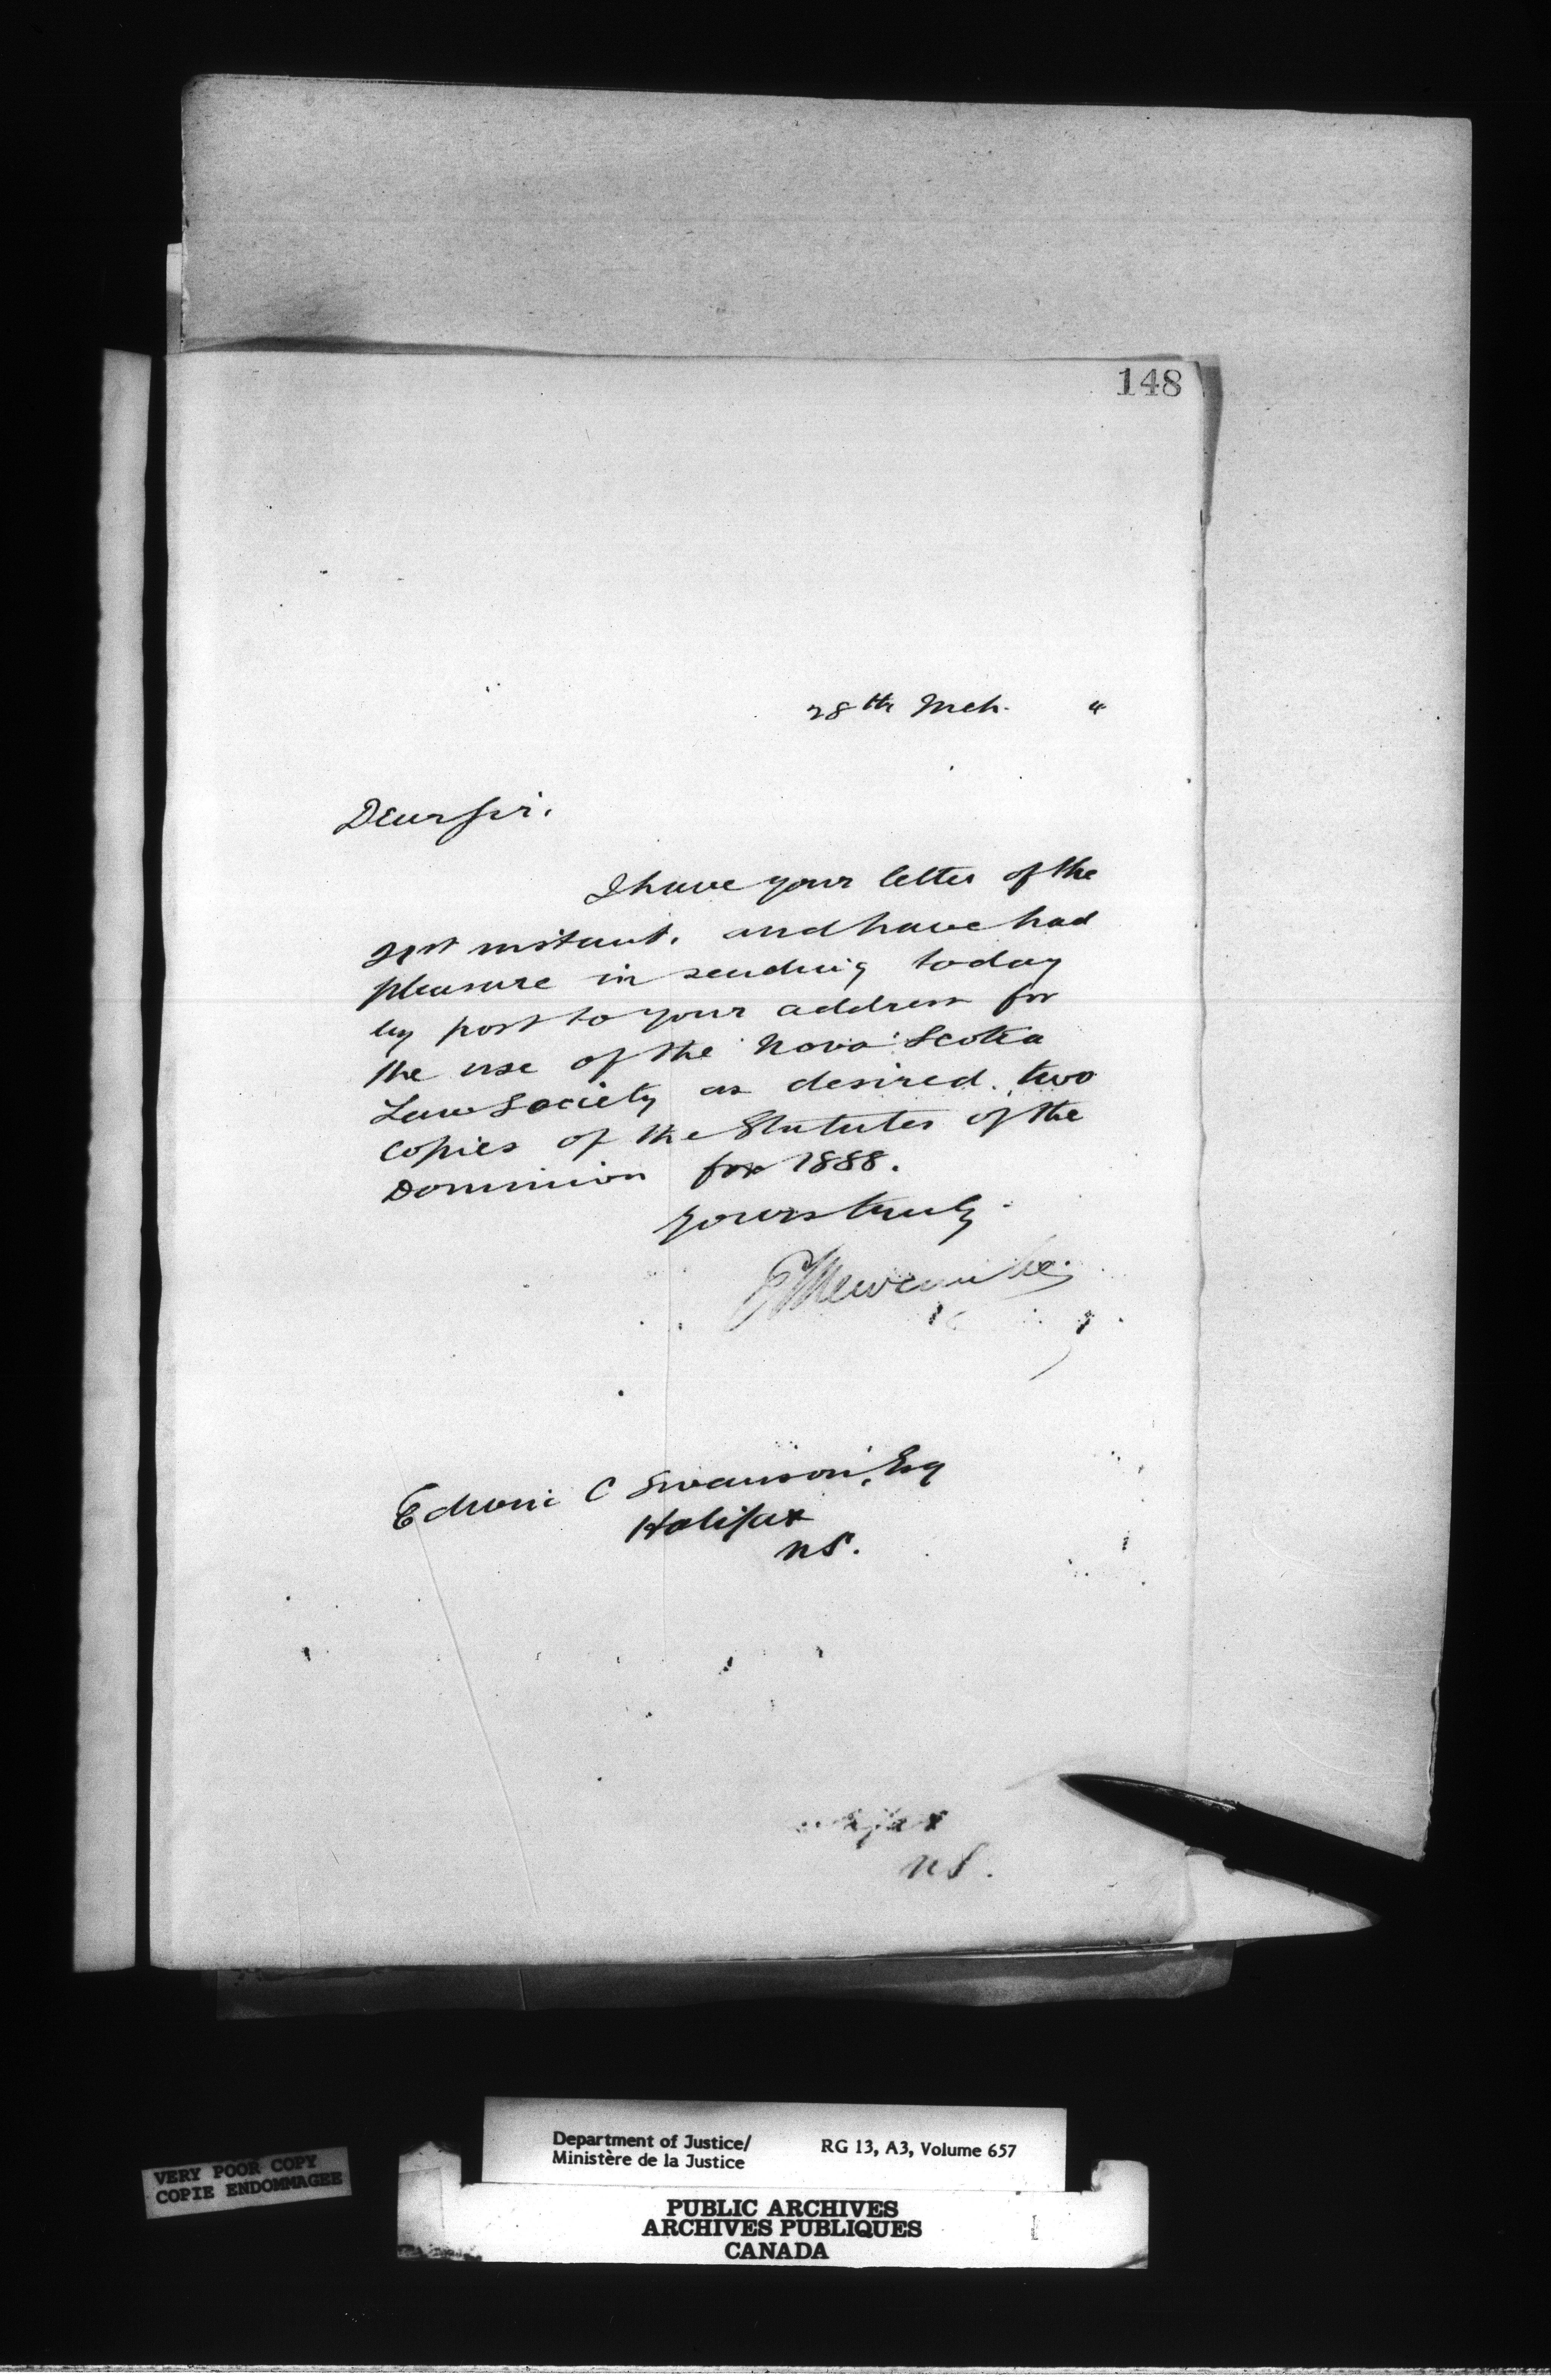 148
28th Mch. "
Dear Sir.
I have your letter of the
21st instant. and have had
pleasure in sending today
by post to your address for
the use of the Nova Scotia
Law Society as desired. two
copies of the Statutes of the
Dominion for 1888.
Yours truly
E Newcombe
C Swanson, Esq
Halifax
NS.
NS.
Department of Justice/
Ministère de la Justice
RG 13, A3, Volume 657
VERY POOR COPY
COPIE ENDOMMAGEE
PUBLIC ARCHIVES
ARCHIVES PUBLIQUES
CANADA